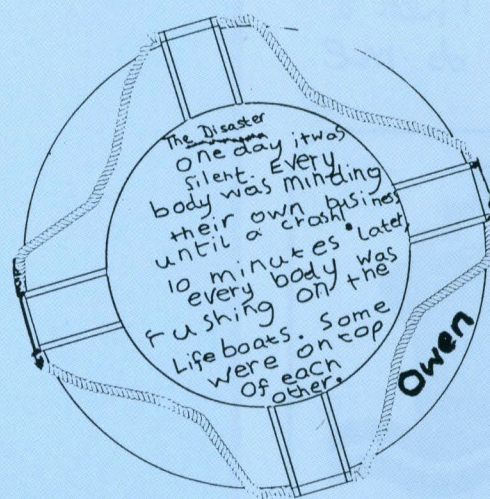 The Disaster
One day it was
silent. Every
body was minding
their own business
until a crash!
10 minutes Later,
every body was
rushing on the
Life boats. Some
were on top
of each
other.
Owen